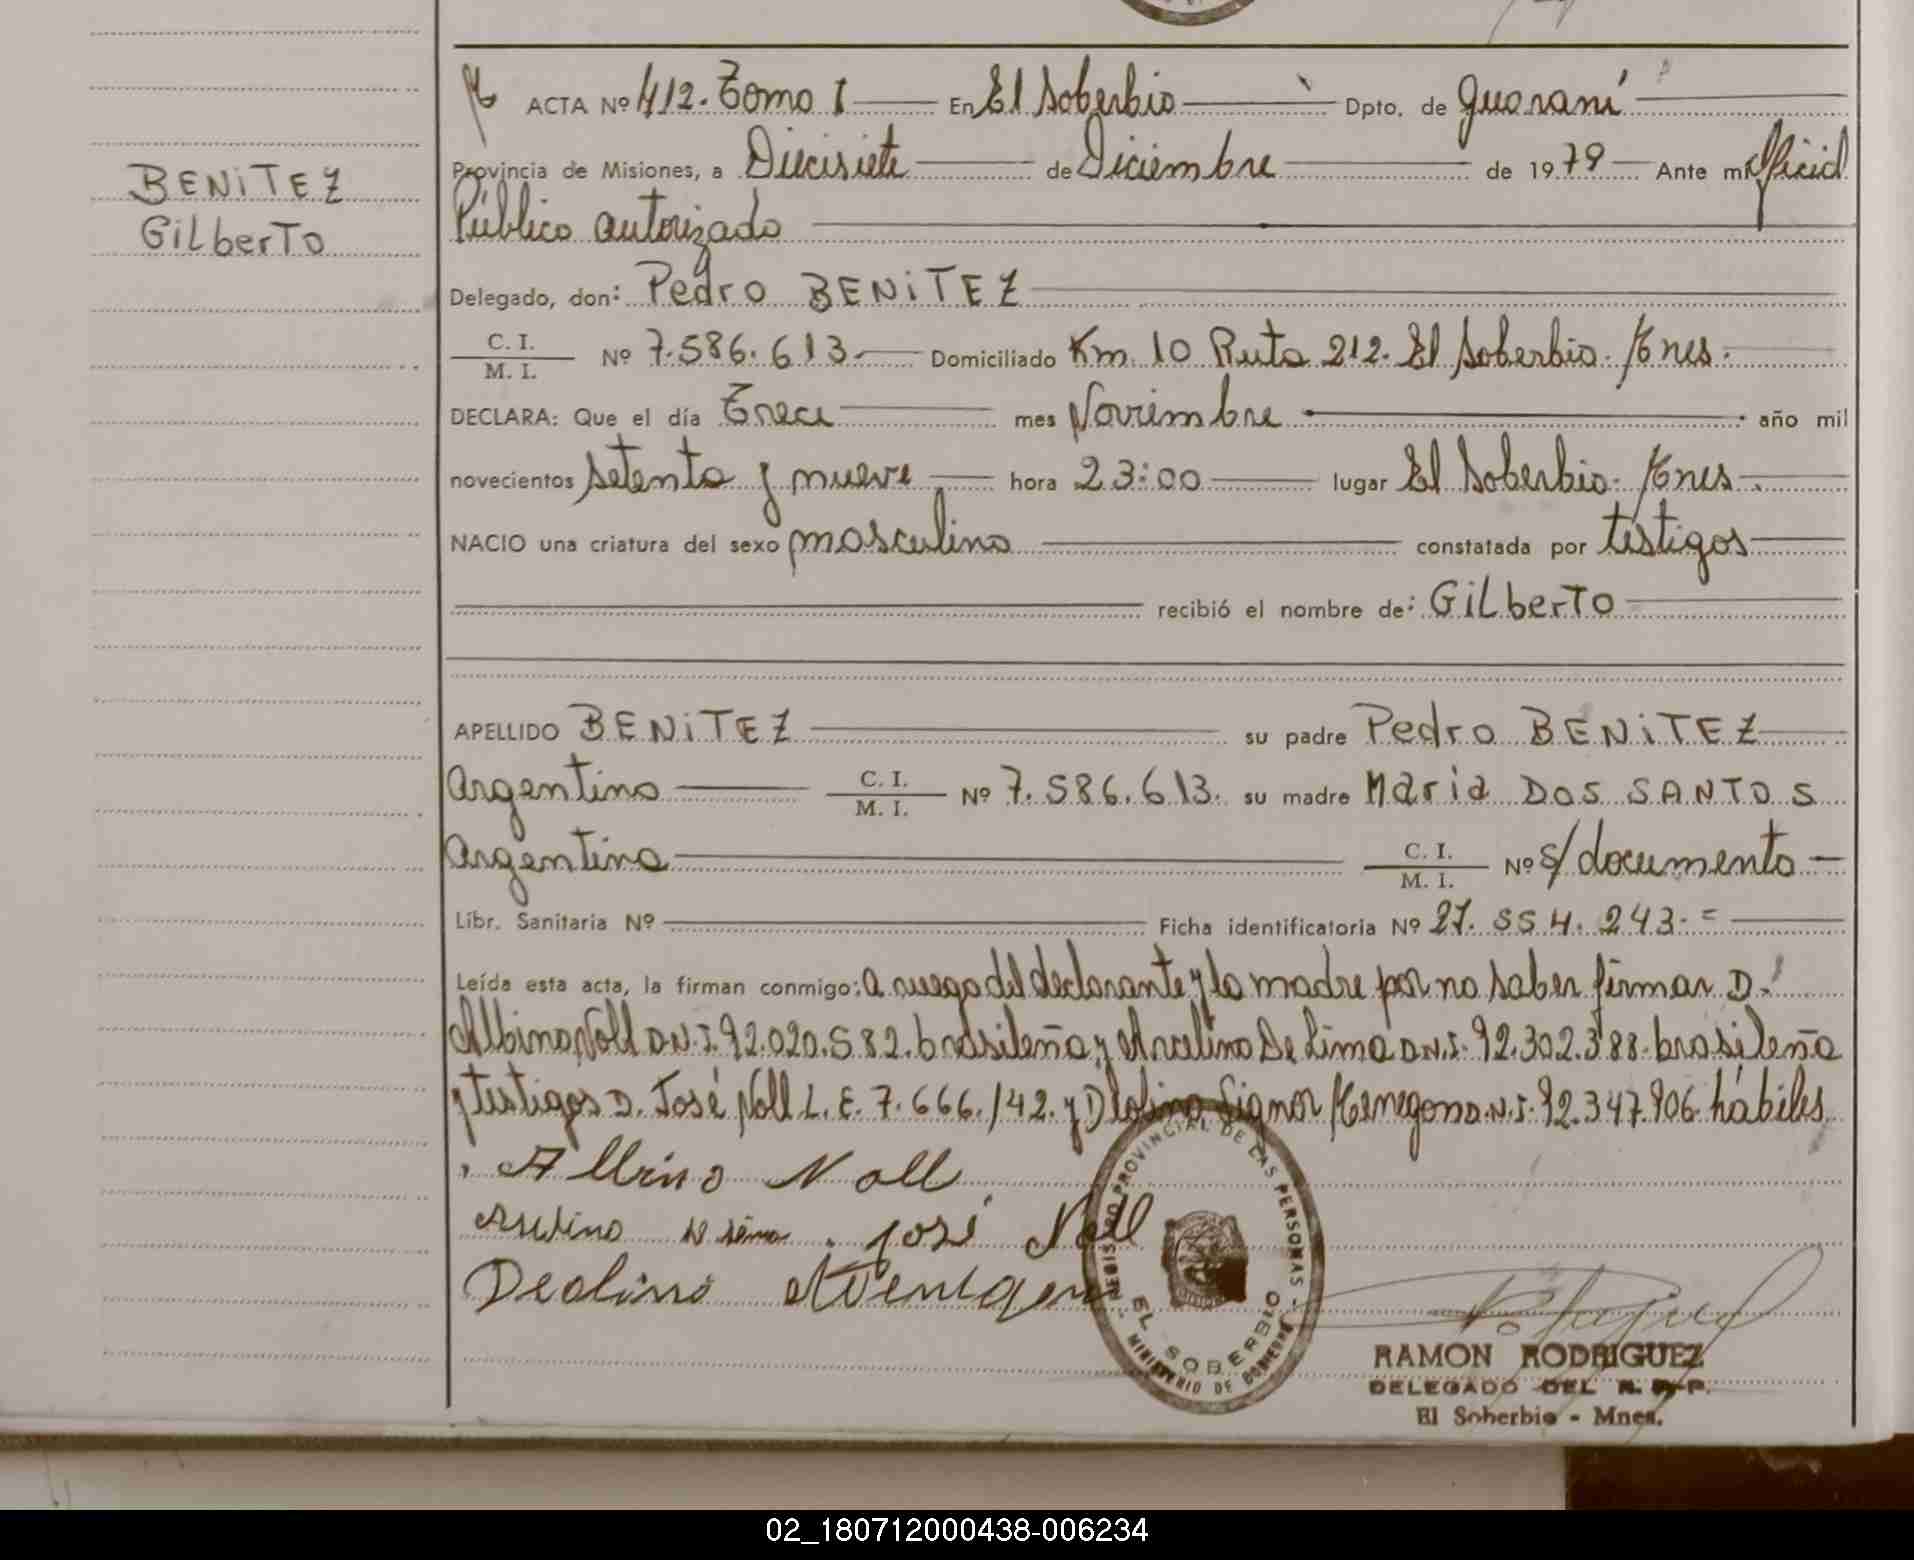 BENITEZ
GilberTo
ACTA Nº 412. Tomo I En El Soberbio Dpto. de Guaraní
Provincia de Misiones, a Diecisiete de Diciembre de 1979 Ante mi Oficial
Público autorizado
Delegado, don: Pedro BENITEZ
C. I.
M. I. Nº 7.586.613. Domiciliado Km. 10 Ruta 212. El Soberbio. Mnes.
DECLARA: Que el día Trece mes Noviembre año mil
novecientos setenta y nueve hora 23:00 lugar El Soberbio. Mnes.
NACIO una criatura del sexo masculino constatada por testigos
recibió el nombre de: GilberTo
APELLIDO BENITEZ su padre Pedro BENITEZ
Argentino C. I.
M. I. Nº 7.586.613. su madre Maria DOS SANTOS
Argentina C. I.
M. I. Nº s/documento
Libr. Sanitaria Nº Ficha identificatoria Nº 27.554.243.=
Leída esta acta, la firman conmigo: a ruego del declarante y la madre por no saber firmar D.
Albino Noll D.N.I. 92.020.582. brasileña y Arcelino De Lima D.N.I. 92.302.388. brasileña
y testigos D. José Noll L.E. 7.666.142. y Dlolino Signor Menegon D.N.I. 92.347.906. hábiles
Albino Noll
Arcelino de Lima. José Noll
Deolino
REGISTRO PROVINCIAL DE LAS PERSONAS -
EL SOBERBIO
MINISTERIO DE GOBIERNO
RAMON RODRIGUEZ
DELEGADO DEL R. P. P.
El Soberbio - Mnes.
02_180712000438-006234